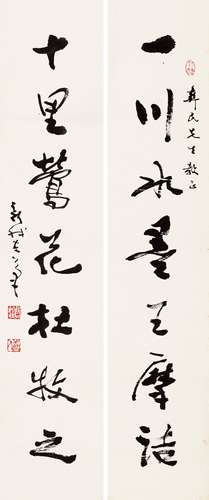 民先生教正
一川水墨王摩詰
十里鶯花杜牧之